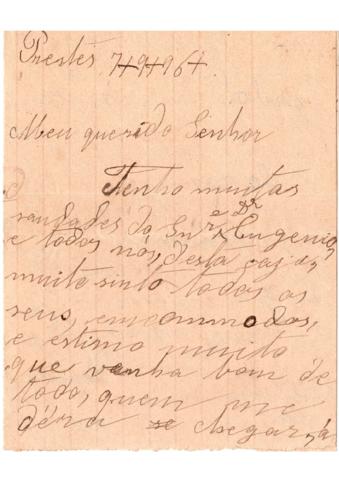 Prestes 7-9-964.
Meu querido Senhor
Tenho muitas
saudades do Snr e Dr Eugenio,
e todos nós, desta caz da
muite sinto todos os
seus, emcommodos,
e estimo muito
que venha bom de
todo, quem me
déra se chegar, á